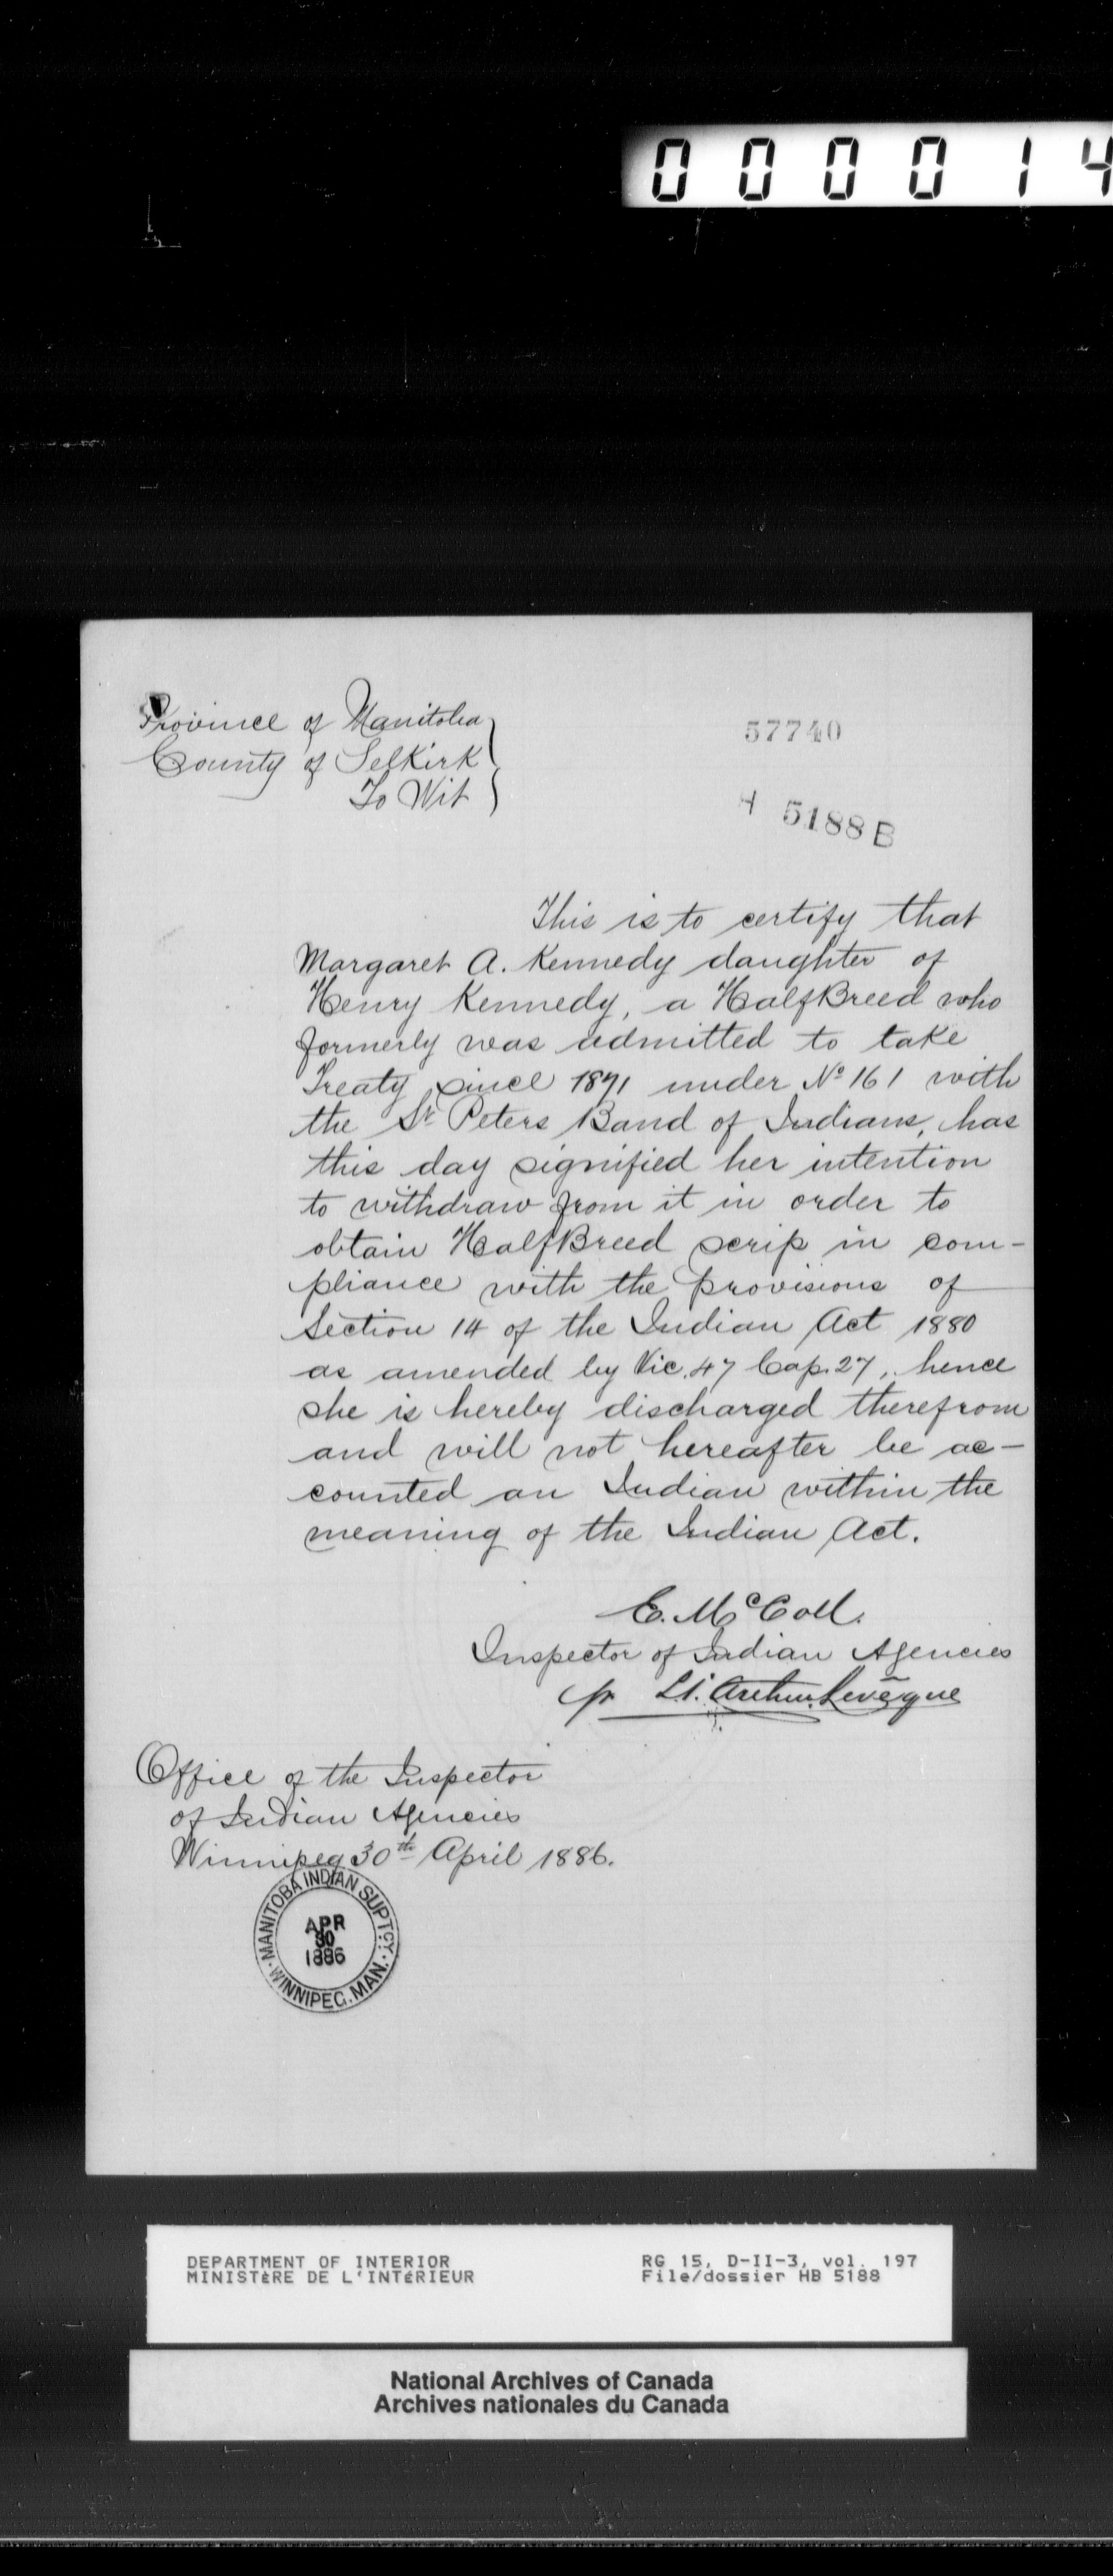 000014
Province of Manitoba
County of Selkirk
To Wit
57740
H 5188 B
This is to certify that
Margaret A. Kennedy daughter of
Henry Kennedy, a HalfBreed who
formerly was admitted to take
Treaty since 1871 under No 161 with
the St Peters Band of Indians, has
this day signified her intention
to withdraw from it in order to
obtain HalfBreed scrip in com-
pliance with the provisions of
Section 14 of the Indian Act 1880
as amended by Vic. 47 Cap. 27, hence
she is hereby discharged therefrom
and will not hereafter be ac-
counted an Indian within the
meaning of the Indian Act.
E. McColl.
Inspector of Indian Agencies
pr L. Arthur Levêque
Office of the Inspector
of Indian Agencies
Winnipeg 30th April 1886.
MANITOBA INDIAN SUPTCY.
APR
30
1886
WINNIPEG. MAN.
DEPARTMENT OF INTERIOR
MINISTÈRE DE L'INTÉRIEUR
RG 15, D-II-3, vol. 197
File/dossier HB 5188
National Archives of Canada
Archives nationales du Canada